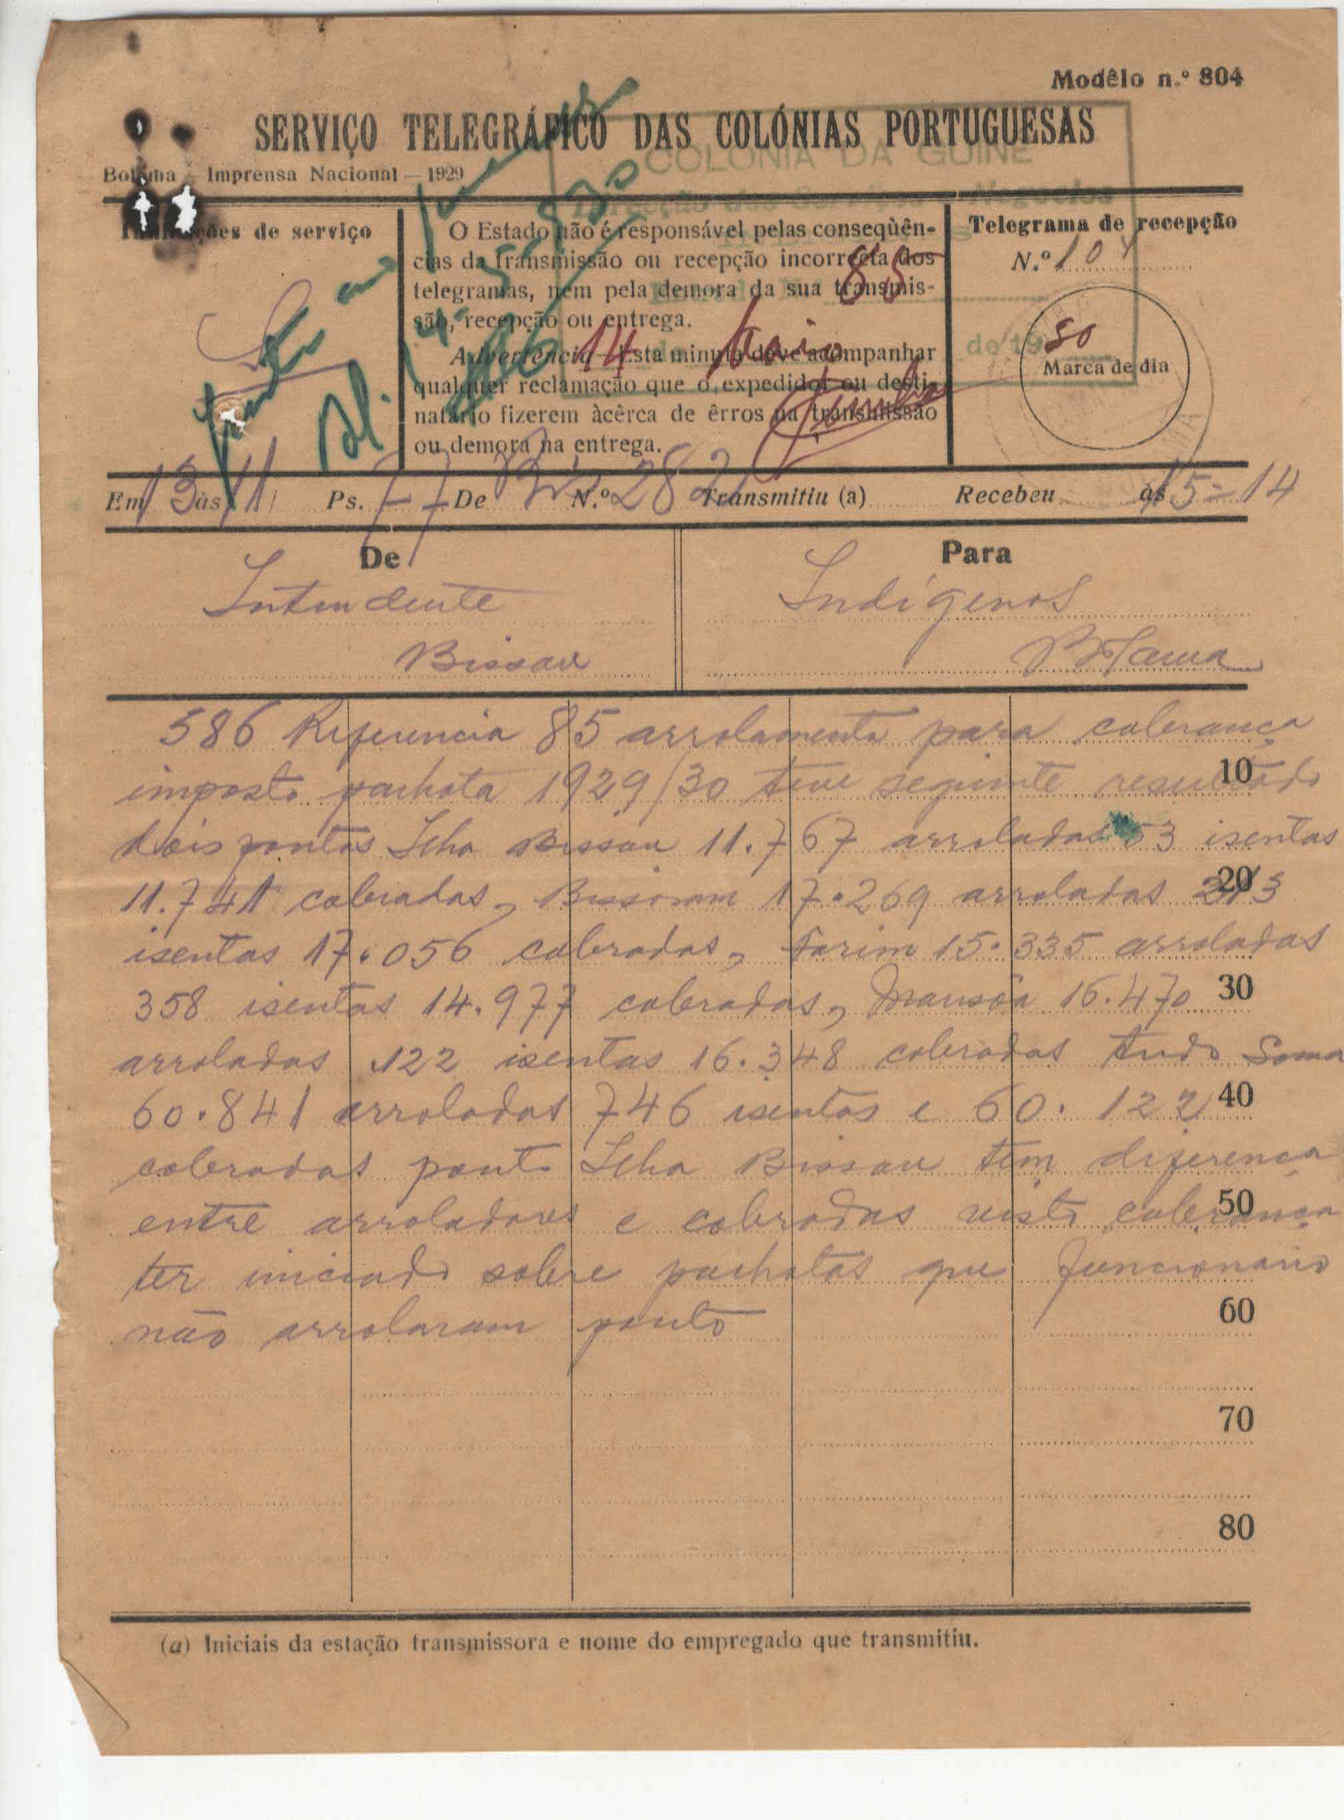 Modêlo n.º 804
SERVIÇO TELEGRÁFICO DAS COLÓNIAS PORTUGUESAS
COLONIA DA GUINÉ
Bolama — Imprensa Nacional — 1929
de serviço
O Estado não é responsável pelas conseqüên-
cias da transmissão ou recepção incorrecta dos
telegramas, nem pela demora da sua transmis-
são, recepção ou entrega.
Advertência — Esta minuta deve acompanhar
qualquer reclamação que o expedidor ou desti-
natário fizerem àcêrca de êrros na transmissão
ou demora na entrega.
85
14 Maio
de 19 30
Telegrama de recepção
N.º 104
Marca de dia
Em 13 às 11 Ps. 77 De Bis N.º 282 Transmitiu (a) Recebeu às 15-14
De
Intendente
Bissau
Para
Indígenas
Bolama
586 Referencia 85 arrolamento para cobrança
imposto palhota 1929/30 teve seguinte resultado 10
dois pontos Ilha Bissau 11.767 arroladas 53 isentas
11.741 cobradas, Bissoram 17.269 arroladas 213 20
isentas 17.056 cobradas, Farim 15.335 arroladas
358 isentas 14.977 cobradas, Mansôa 16.470 30
arroladas 122 isentas 16.348 cobradas tudo soma
60.841 arroladas 746 isentas e 60.122 40
cobradas ponto Ilha Bissau tem diferença
entre arroladas e cobradas visto cobrança 50
ter iniciado sobre palhotas que funcionario
não arrolaram ponto 60
70
80
(a) Iniciais da estação transmissora e nome do empregado que transmitiu.